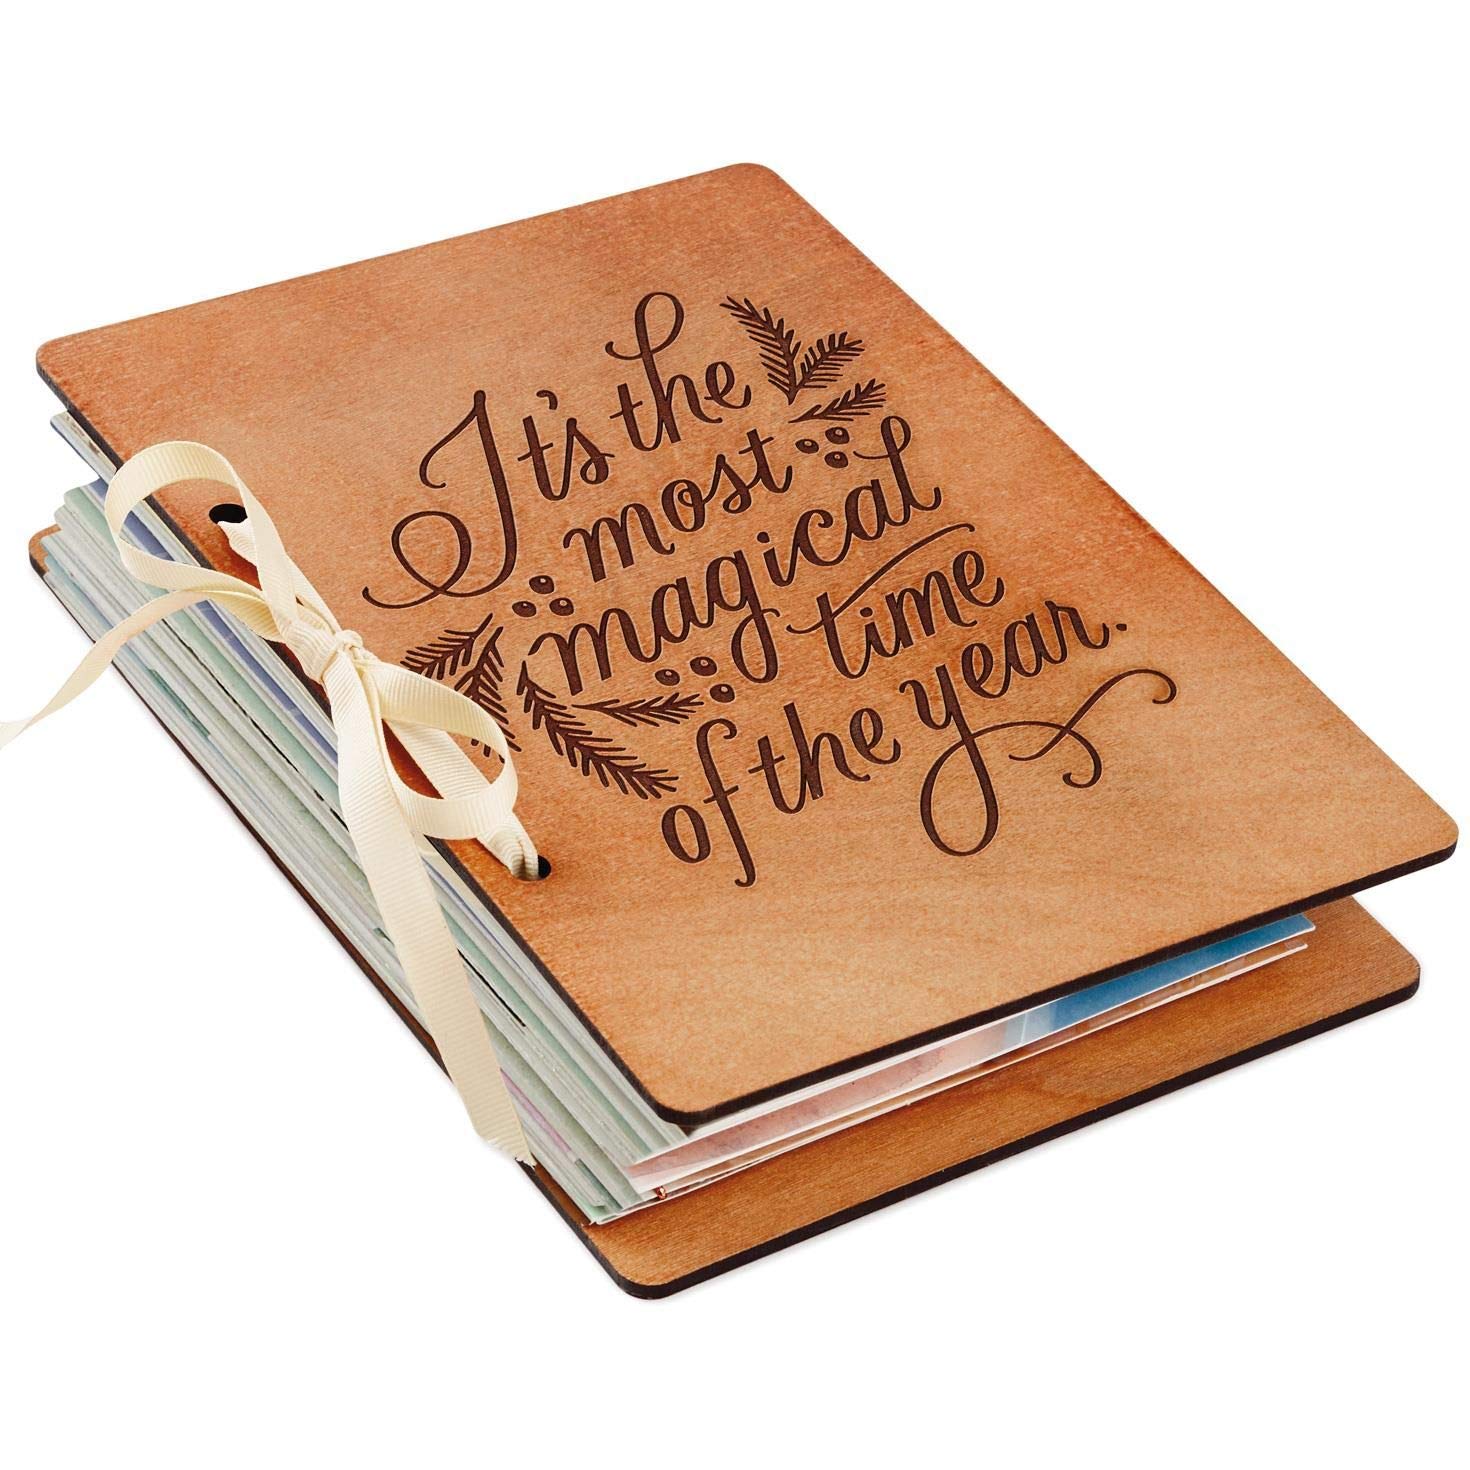 It's the
most
magical
time
of the year.